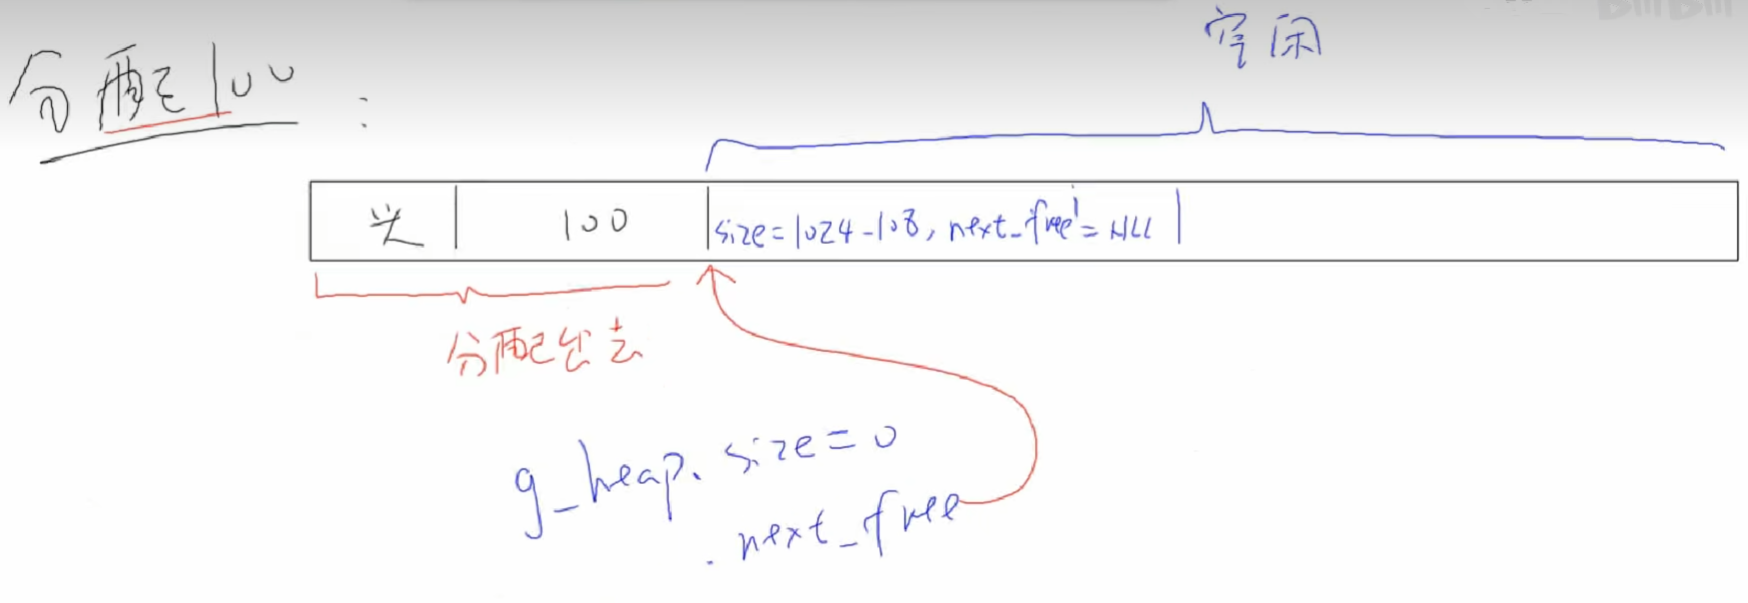 空闲
分配100:
头 100 size=1024-108, next_free=NULL
分配出去
g_heap. size=0
. next_free